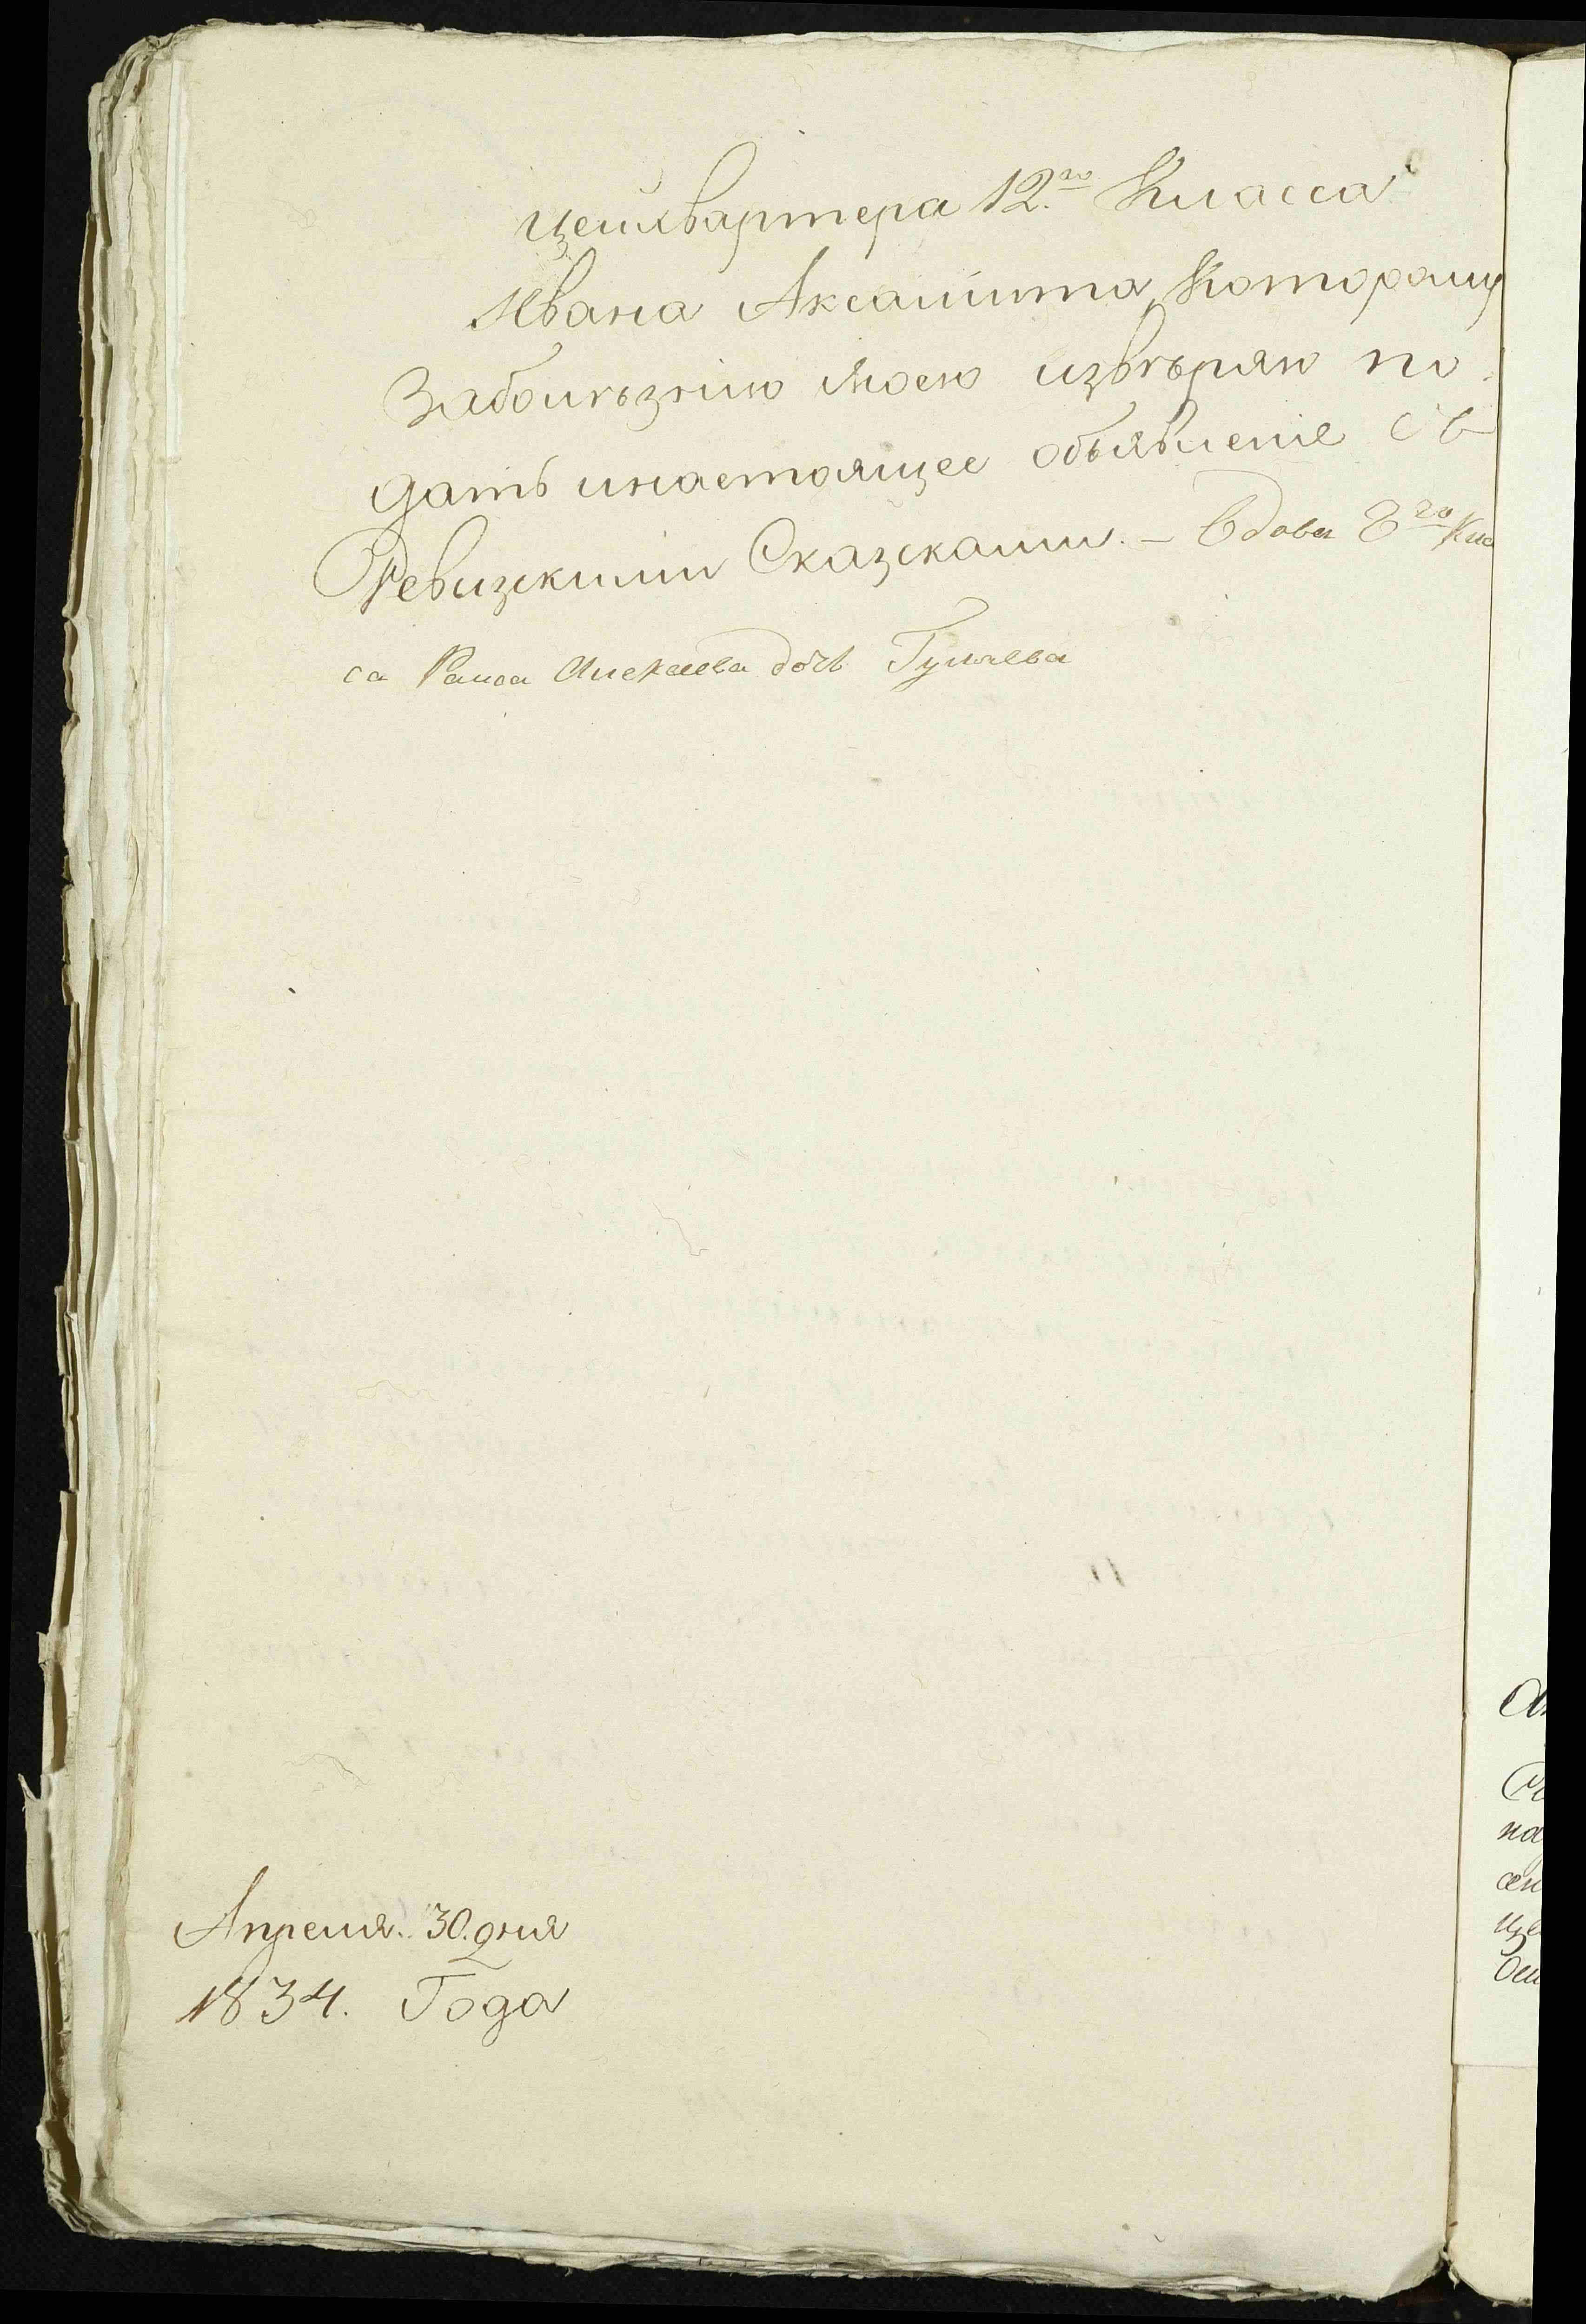 цейхвартера 12.го Класса
Ивана Аксамита, Которому
Заболѣзнію моею извѣряю по
дать инастоящее объявленіе съ
Ревизскими Сказсками. – Вдова 8го Клас
са Раиса Алексеева дочь Гуляева
Апреля. 30. дня
1834. Года